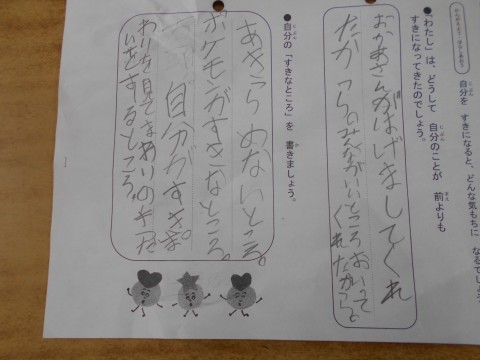 自分を すきになると、どんな気もちに なるでしょ
●「わたし」は、どうして 自分のことが 前よりも
すきになってきたのでしょう。
おかあさんがはげましてくれ
たから
みんながいいところ
くれたから
●自分の「すきなところ」を 書きましょう。
あきらめないところ。
ポケモンがすきなところ。
自分がすき
わりを見て
いをするところ。